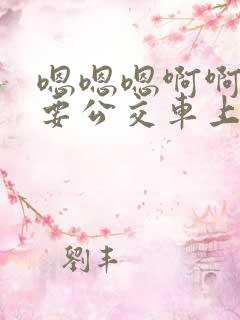 嗯嗯嗯啊啊
要公交車上
劉丰